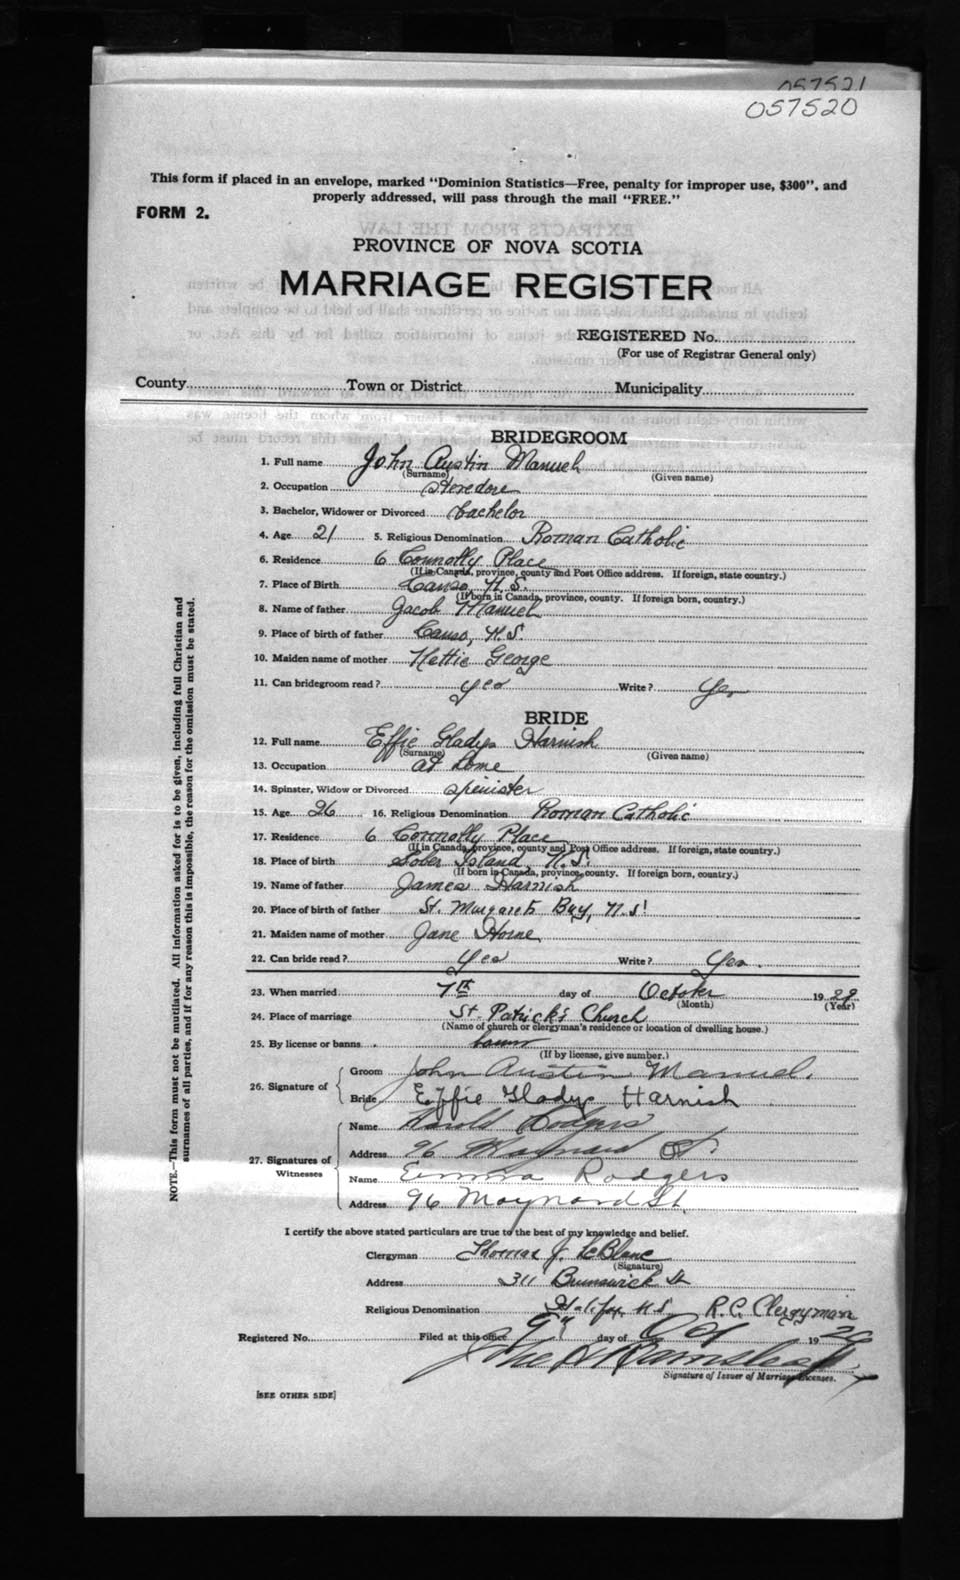 057521
057520
This form if placed in an envelope, marked "Dominion Statistics—Free, penalty for improper use, $300", and
properly addressed, will pass through the mail "FREE."
FORM 2.
PROVINCE OF NOVA SCOTIA
MARRIAGE REGISTER
REGISTERED No.
(For use of Registrar General only)
County Town or District Municipality
BRIDEGROOM
1. Full name John Austin Manuel
(Surname) (Given name)
2. Occupation Stevedore
3. Bachelor, Widower or Divorced bachelor
4. Age 21 5. Religious Denomination Roman Catholic
6. Residence 6 Connolly Place
(If in Canada, province, county and Post Office address. If foreign, state country.)
7. Place of Birth Canso N.S.
(If born in Canada, province, county. If foreign born, country.)
8. Name of father Jacob Manuel
9. Place of birth of father Canso, N.S.
10. Maiden name of mother Hettie George
11. Can bridegroom read? yes Write? Yes
BRIDE
12. Full name Effie Gladys Harnish
(Surname) (Given name)
13. Occupation at home
14. Spinster, Widow or Divorced spinister
15. Age 26 16. Religious Denomination Roman Catholic
17. Residence 6 Connolly Place
(If in Canada, province, county and Post Office address. If foreign, state country.)
18. Place of birth Sober Island, N.S.
(If born in Canada, province, county. If foreign born, country.)
19. Name of father James Harnish
20. Place of birth of father St. Margarets Bay, N.S.
21. Maiden name of mother Jane Horne
22. Can bride read? Yes Write? Yes.
23. When married 7th day of October 19 29
(Month) (Year)
24. Place of marriage St. Patrick's Church
(Name of church or clergyman's residence or location of dwelling house.)
25. By license or banns
(If by license, give number.)
26. Signature of Groom John Austin Manuel.
Bride Effie Gladys Harnish
27. Signatures of Witnesses
Name Harold Rodgers
Address 96 Maynard St.
Name Emma Rodgers
Address 96 Maynard St.
I certify the above stated particulars are true to the best of my knowledge and belief.
Clergyman Thomas J. LeBlanc
(Signature)
Address 311 Brunswick St
Religious Denomination Halifax N.S. R.C. Clergyman
Registered No. Filed at this office 9th day of Oct 19 29
Signature of Issuer of Marriage Licenses.
[SEE OTHER SIDE]
NOTE.—This form must not be mutilated. All information asked for is to be given, including full Christian and
surnames of all parties, and if for any reason this is impossible, the reason for the omission must be stated.